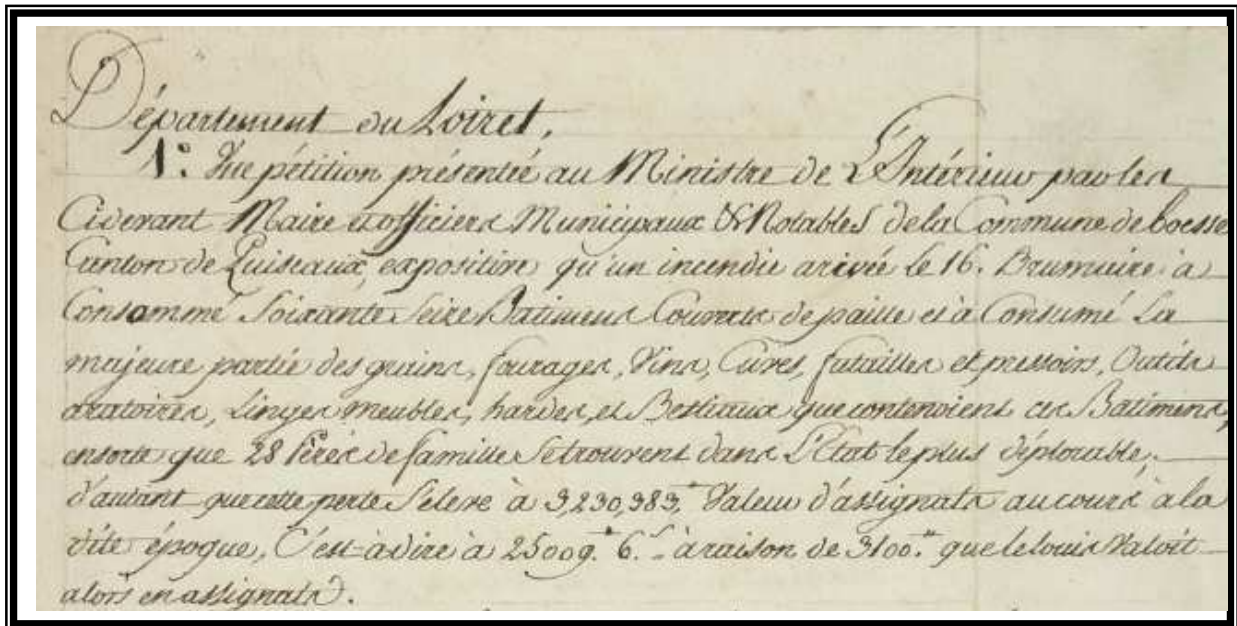 Département du Loiret,
1º. Une pétition présentée au Ministre de L'Intérieur par les
Cidevant Maire et officiers Municipaux & Notables de la Commune de boesse
Canton de Puiseaux, expositive qu'un incendie arivée le 16. Brumaire à
Consommé Soixante Seize Batimens Couverts de paille et à Consumé La
majeure partie des grains, fourages, Vins, Cuves, futailles et pressoirs, Outils
aratoires, Linges meubles, hardes, et Bestiaux que contenoient ces Batimens,
ensorte que 28 Pères de famille se trouvent dans L'Etat le plus déplorable,
d'autant que cette perte S'eleve à 3,230,383.ᵗ Valeur d'assignats au cours à la
dite époque, C'est à dire à 25009.ᵗ 6.ˢ à raison de 3100.ᵗ que le louis Valoit
alors en assignats.